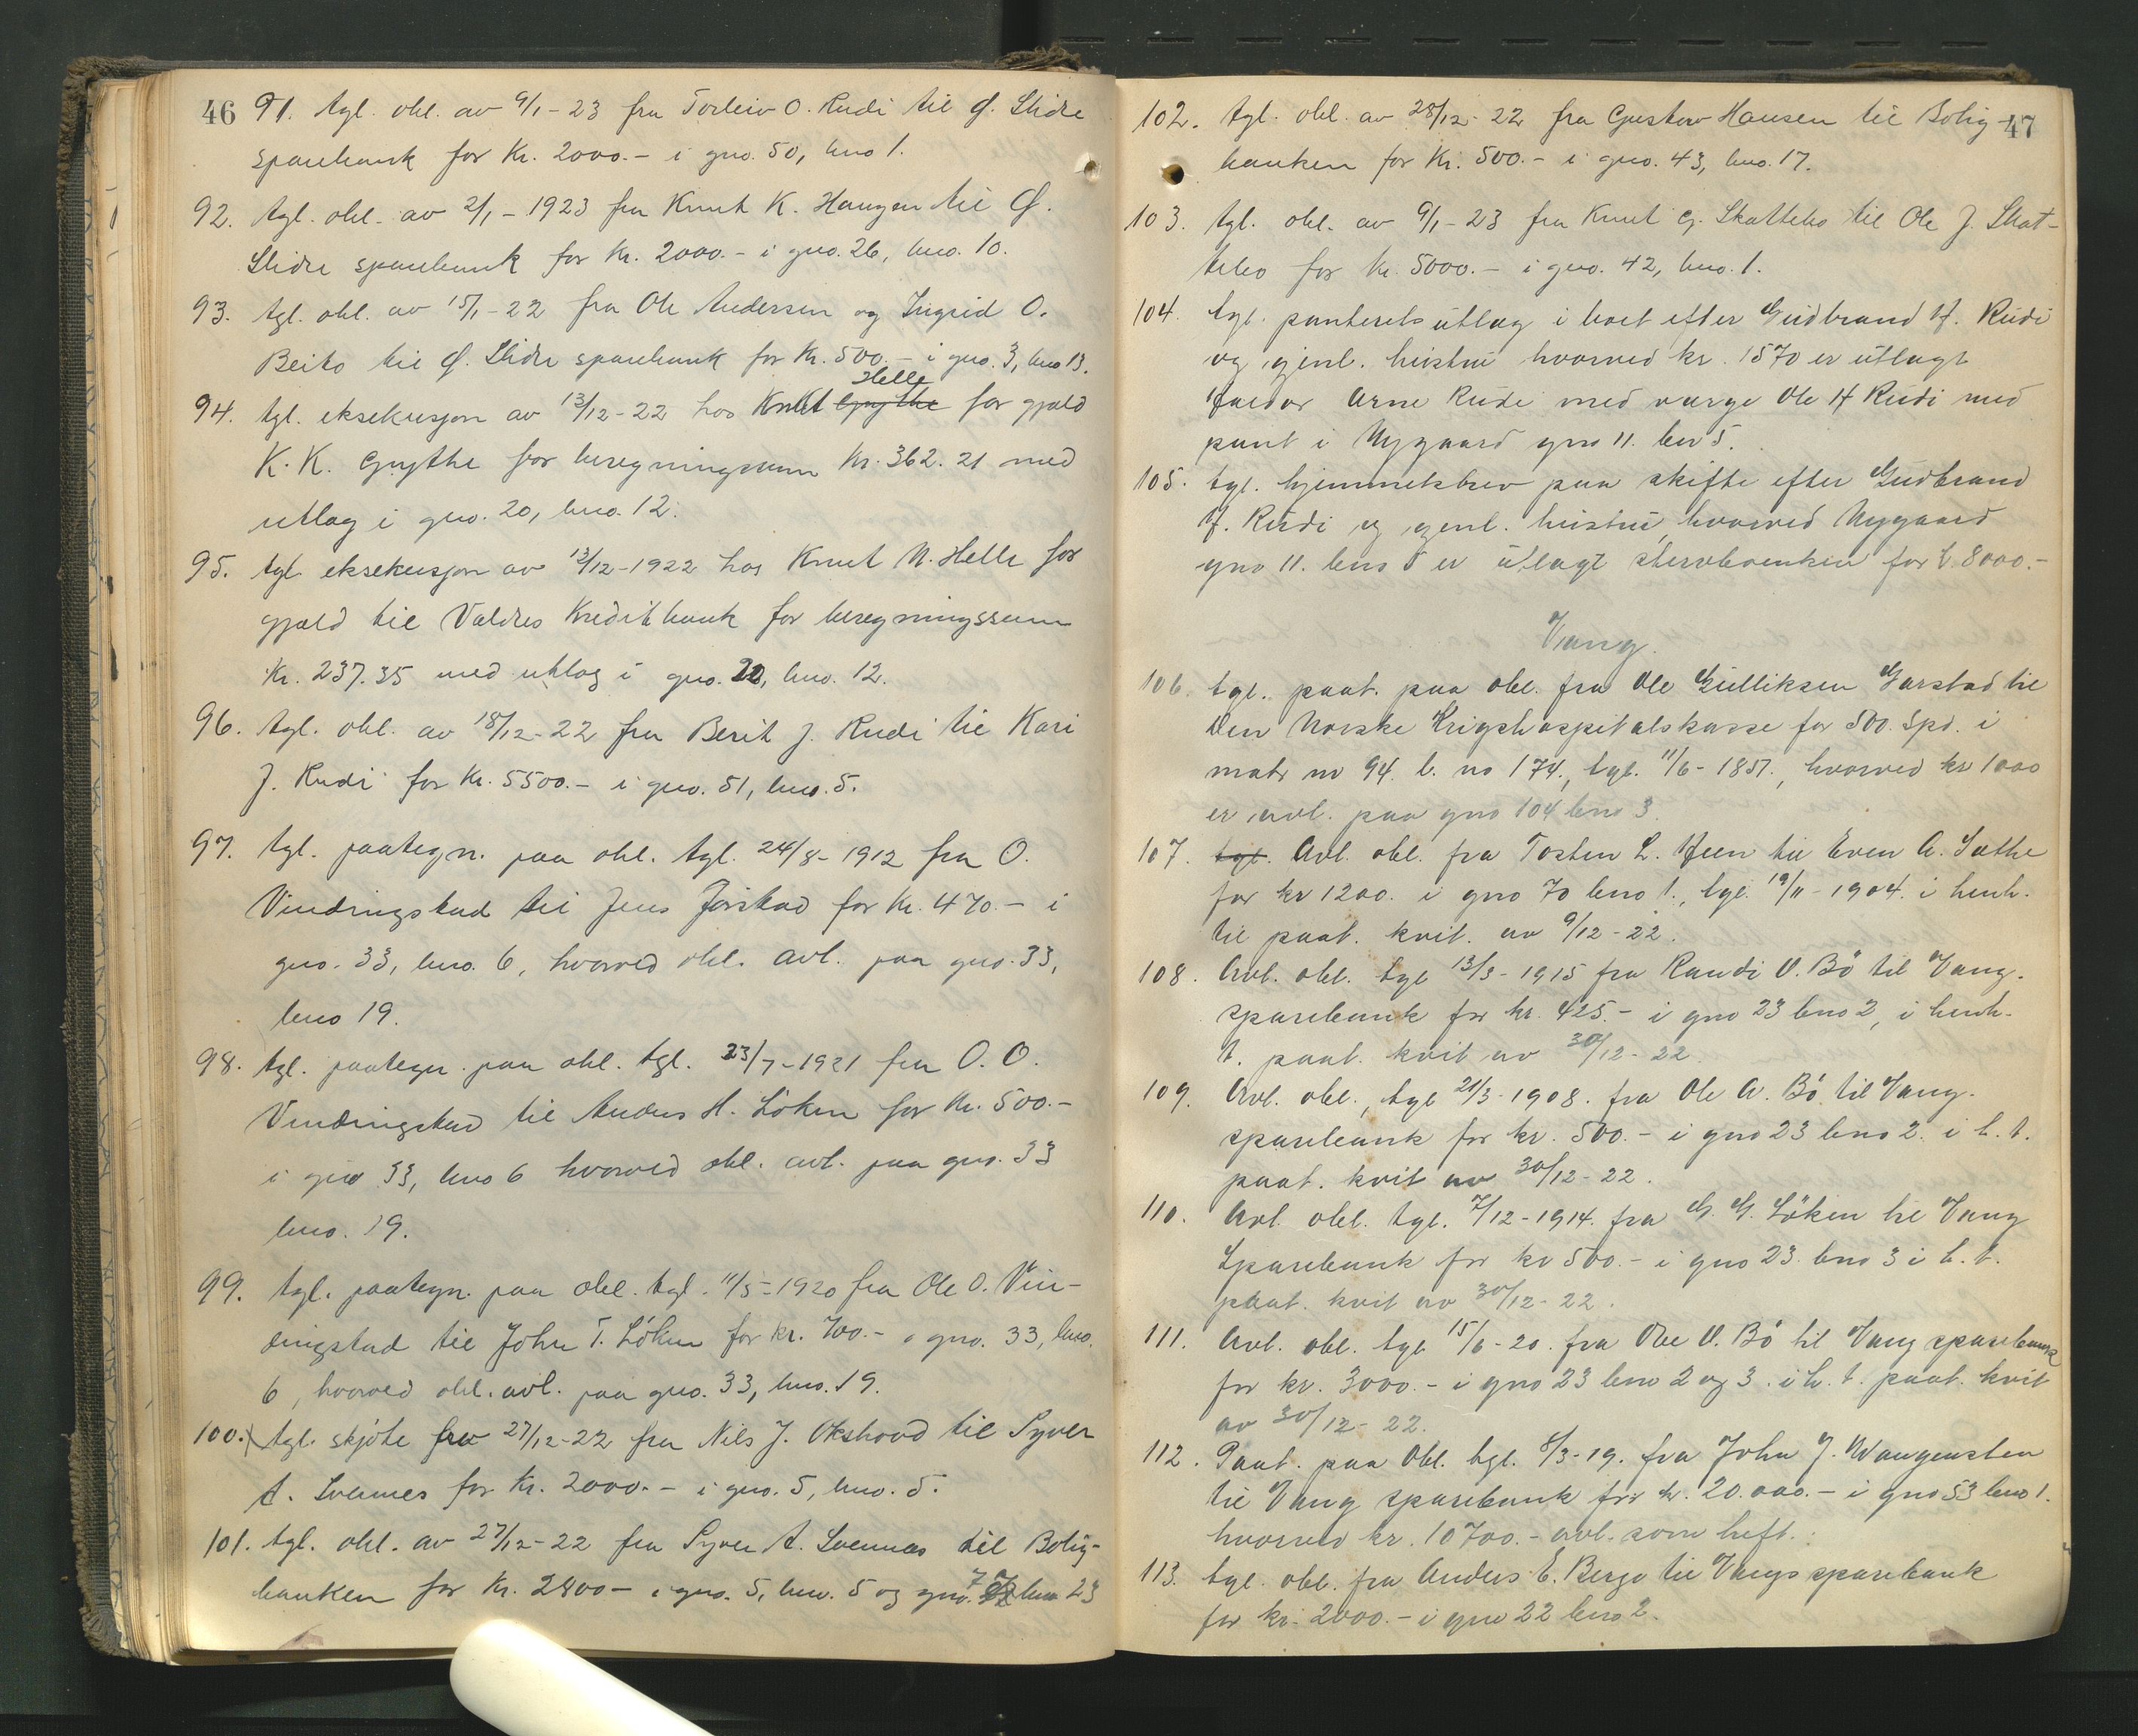 46
91. tgl. obl. av 9/1-23 fra Torleiv O. Rudi til Ø. Slidre
sparebank for Kr. 2000.- i gno. 50, bno 1.
92. tgl. obl. av 2/1-1923 fra Knut K. Haugen til Ø.
Slidre sparebank for Kr. 2000.- i gno. 26, bno. 10.
93. tgl. obl. av 15/1-22 fra Ole Andersen og Ingrid O.
Beito til Ø. Slidre sparebank for Kr. 500.- i gno. 3, bno 13.
94. tgl. eksekusjon av 13/12-22 hos Knut Helle for gjæld
K. K. Grythe for beregningssum Kr. 362.21 med
utlag i gno. 20, bno. 12.
95. tgl. eksekusjon av 13/12-1922 hos Knut N. Helle for
gjæld til Valdres Kreditbank for beregningssum
Kr. 237.35 med utlag i gno. 20, bno. 12.
96. tgl. obl. av 18/12-22 fra Berit J. Rudi til Kari
J. Rudi for Kr. 5500.- i gno. 51, bno. 5.
97. tgl. paategn. paa obl. tgl. 24/8-1912 fra O.
Vindingstad til Jens Jørstad for Kr. 470.- i
gno. 33, bno. 6, hvorved obl. avl. paa gno. 33,
bno 19.
98. tgl. paategn. paa obl. tgl. 23/7-1921 fra O. O.
Vindingstad til Anders H. Löken for Kr. 500.-
i gno 33, bno 6 hvorved obl. avl. paa gno. 33
bno. 19.
99. tgl. paategn. paa obl. tgl. 11/5-1920 fra Ole O. Vin-
dingstad til John T. Löken for kr. 700.- i gno. 33, bno.
6, hvorved obl. avl. paa gno. 33, bno. 19.
100. tgl. skjöte fra 27/12-22 fra Nils J. Okshovd til Syver
A. Lvennes for Kr. 2000.- i gno. 5, bno. 5.
101. tgl. obl. av 27/12-22 fra Syver A. Lvennes til Bolig-
banken for Kr. 2800- i gno. 5, bno. 5 og gno. 7 bno 23
47
102. tgl. obl. av 28/12-22 fra Gustav Hansen til Bolig-
banken for Kr. 500.- i gno. 43, bno. 17.
103. tgl. obl. av 9/1-23 fra Knut G. Skattebo til Ole J. Skat-
tebo for Kr. 5000.- i gno. 42, bno. 1.
104. tgl. panteretsutlæg i boet efter Gudbrand H. Rudi
og gjenl. hustru hvorved kr. 1570 er utlagt
Halvor Arne Rudi med værge Ole H Rudi med
pant i Nygaard gno 11. bno 5.
105. tgl. hjemmelsbrev paa skifte efter Gudbrand
H. Rudi og gjenl. hustru, hvorved Nygaard
gno 11. bno 5 er utlagt stervboenken for kr 8000.-
Vang.
106. tgl. paat. paa obl. fra Ole Gulliksen Garstad til
Den Norske Krigshospitalskasse for 500. Spd. i
matr no 94. l. no 174., tgl. 11/6-1857., hvorved kr 1000
er avl. paa gno 104 bno 3.
107. tgl. Avl. obl. fra Tosten L. Heen til Even A. Sathe
for kr 1200. i gno 70 bno 1., tgl. 19/11-1904. i henh.
til paat. kvit. av 9/12-22.
108. Avl. obl. tgl 13/3-1915 fra Randi O. Bö til Vang.
sparebank for kr. 425.- i gno 23 bno 2, i henh.
t. paat. kvit av 30/12-22.
109. Avl. obl., tgl 21/3-1908. fra Ole A. Bö til Vang.
sparebank for kr. 500.- i gno 23 bno 2. i h. t.
paat. kvit av 30/12-22.
110. Avl. obl. tgl. 7/12-1914. fra G. G. Löken til Vang
Sparebank for kr 500.- i gno 23. bno 3 i h. t.
paat. kvit av 30/12-22.
111. Avl. obl. tgl 15/6-20. fra Ole O. Bö til Vang sparebank
for kr. 3000.- i gno 23 bno 2 og 3. i h. t. paat. kvit
av 30/12-22.
112. Paat. paa Obl. tgl. 8/3-19. fra John J. Wangensten
til Vang sparebank for kr. 20.000.- i gno 53 bno 1.
hvorved kr. 10700.- avl. som heft.
113. tgl. obl. fra Anders E. Berge til Vangs sparebank
for kr. 2000.- i gno 22 bno 2.